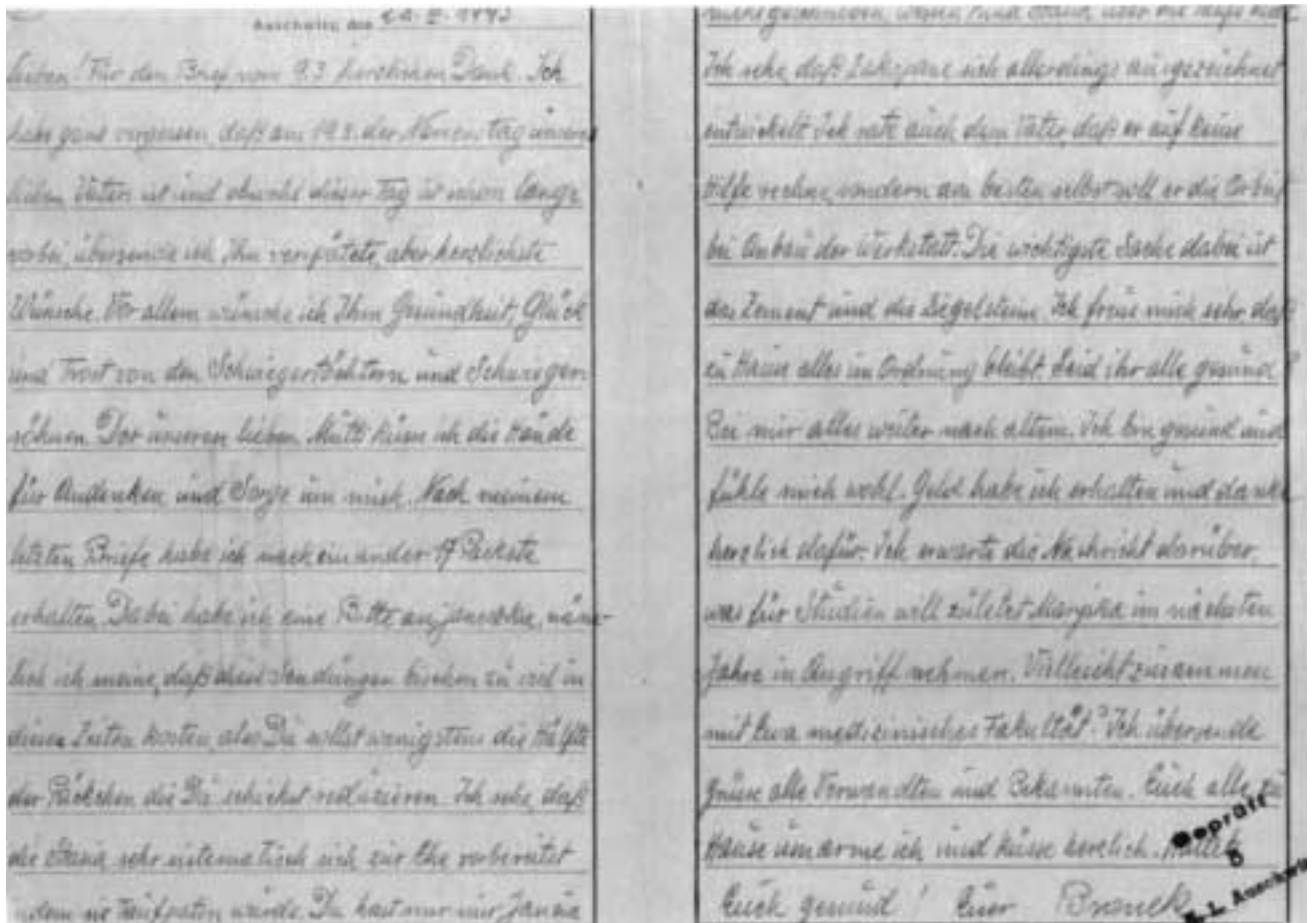 Auschwitz, den
Lieben! Für den Brief vom 9.3 herzlichen Dank. Ich
habe ganz vergessen daß am 19.3. der Namenstag unseres
lieben Vaters ist und obwohl dieser Tag ist schon lange
vorbei, übersende ich Ihm verspätete, aber herzlichste
Wünsche. Vor allem wünsche ich Ihm Gesundheit, Glück
und Trost von den Schwiegertöchtern und Schwieger-
söhnen. Der unseren lieben Mutti küsse ich die Hände
für Andenken und Sorge um mich. Nach meinem
letzten Briefe habe ich nach einander 17 Packete
erhalten. Dabei habe ich eine Bitte an näm-
lich ich meine, daß diese Sendungen bischen zu viel in
diesen Zeiten kosten, also Du sollst wenigstens die Hälfte
der Päckchen die Du schickst reduzieren. Ich sehe, daß
die sehr sistematisch sich zur Ehe vorbereitet
indem sie Taufpaten wurde. Du hast nur mir, Jansia
Ich sehe, daß Zakopane sich allerdings ausgezeichnet
entwickelt. Ich rate auch dem Vater, daß er auf keine
Hilfe rechne, sondern am besten selbst soll er die Arbeit
bei Anbau der Werkstatt. Die wichtigste Sache dabei ist
das Zement und die Ziegelsteine. Ich freue mich sehr, daß
zu Hause alles im Ordnung bleibt. Seid ihr alle gesund?
Bei mir alles weiter nach altem. Ich bin gesund und
fühle mich wohl. Geld habe ich erhalten und danke
herzlich dafür. Ich erwarte die Nachricht darüber,
was für Studien will zuletzt Marysia im nächsten
Jahre in Angriff nehmen. Vielleicht zusammen
mit Ewa medizinisches Fakultät? Ich übersende
Grüsse alle Verwandten und Bekannten. Euch alle zu
Hause umarme ich und küsse herzlich. Haltet
Euch gesund! Euer Bronek
Geprüft
K. L. Auschwitz